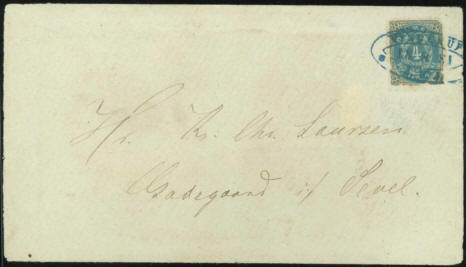 4
UP
Hr. Kr. Chr. Laursen
Gadegaard i/ Sevel.